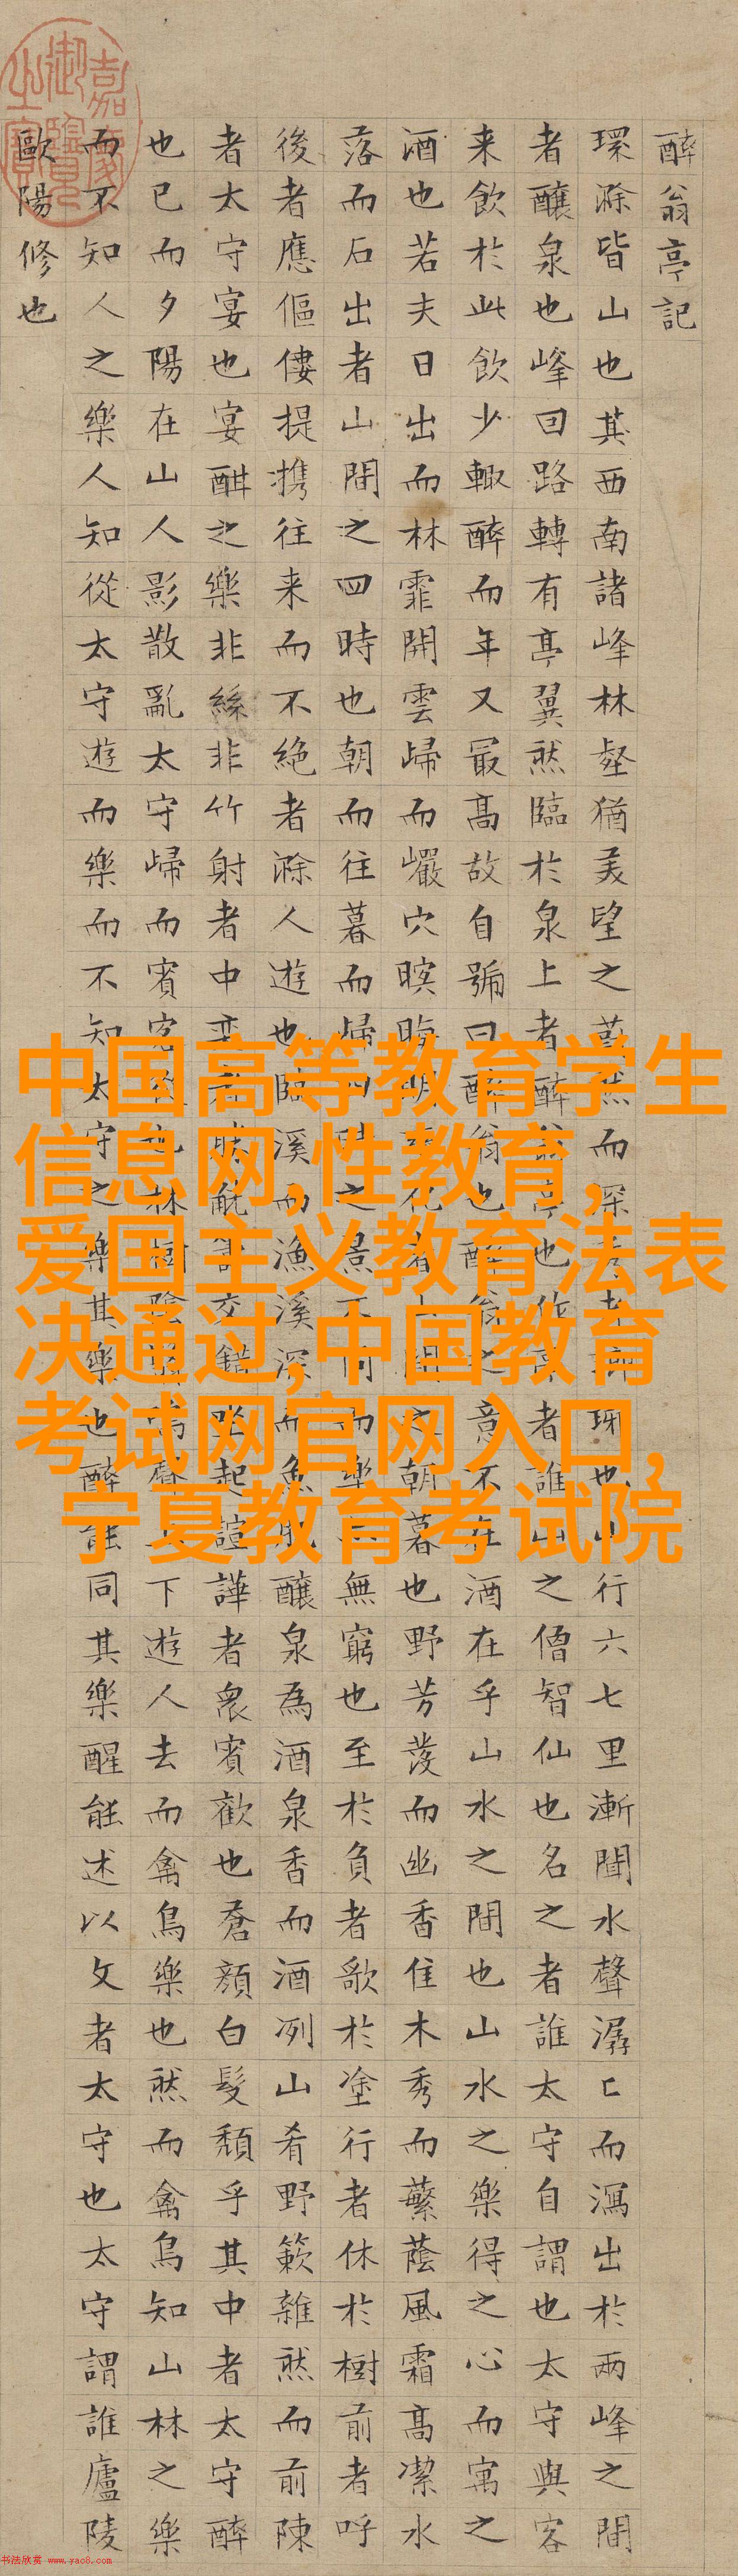 中国高等教育学生
信息网,性教育,
爱国主义教育法表
决通过,中国教育
考试网官网入口,
宁夏教育考试院
醉翁亭記
環滁皆山也其西南諸峰林壑猶美望之然而深也行六七里漸聞水聲潺〻而瀉出於兩峰之間
者釀泉也峰回路轉有亭翼然臨於泉上者醉也作者誰山之僧智仙也名之者誰太守自謂也太守與客
来飲於此飲少輙醉而年又最高故自號曰醉翁也醉翁之意不在酒在乎山水之間也山水之樂得之心而寓之
酒也若夫日出而林霏開雲歸而巖穴暝晦明化者之朝暮也野芳發而幽香佳木秀而蘩蔭風霜高潔水
落而石出者山間之四時也朝而往暮而歸四時之景不同而樂無窮也至於負者歌於塗行者休於樹前者呼
後者應傴僂提携往来而不絶者滁人遊也臨溪而漁溪深而魚釀泉為酒泉香而酒冽山肴野簌雜然而前陳
者太守宴也宴酣之樂非絲非竹射者中觥交錯坐起諠譁者衆賓歡也蒼顏白髮頹乎其中者太守醉
也已而夕陽在山人影散亂太守歸而賓客也林樹陰聲下遊人去而禽鳥樂也然而禽鳥知山林之樂
而不知人之樂人知從太守遊而樂而不知太守之樂其樂也醉能同其樂醒能述以文者太守也太守謂誰廬陵
歐陽修也
嘉慶御覽之寶
书法欣赏 www.yac8.com